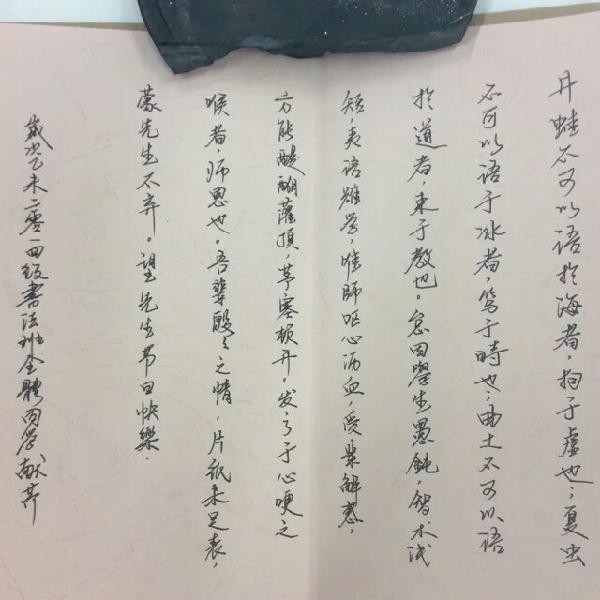 井蛙不可以语於海者，拘于虚也；夏虫
不可以语于冰者，笃于時也；曲士不可以语
於道者，束于教也。怠因學生愚鈍，智术浅
短，夷语難学，惟師呕心沥血，受業解惑，
方能醍醐灌頂，茅塞頓开。发乎于心哽之
喉者，师恩也。吾辈殷々之情，片紙未足表，
蒙先生不弃。望先生节日快樂．
歲次乙未二零一四级書法班全體同学献草